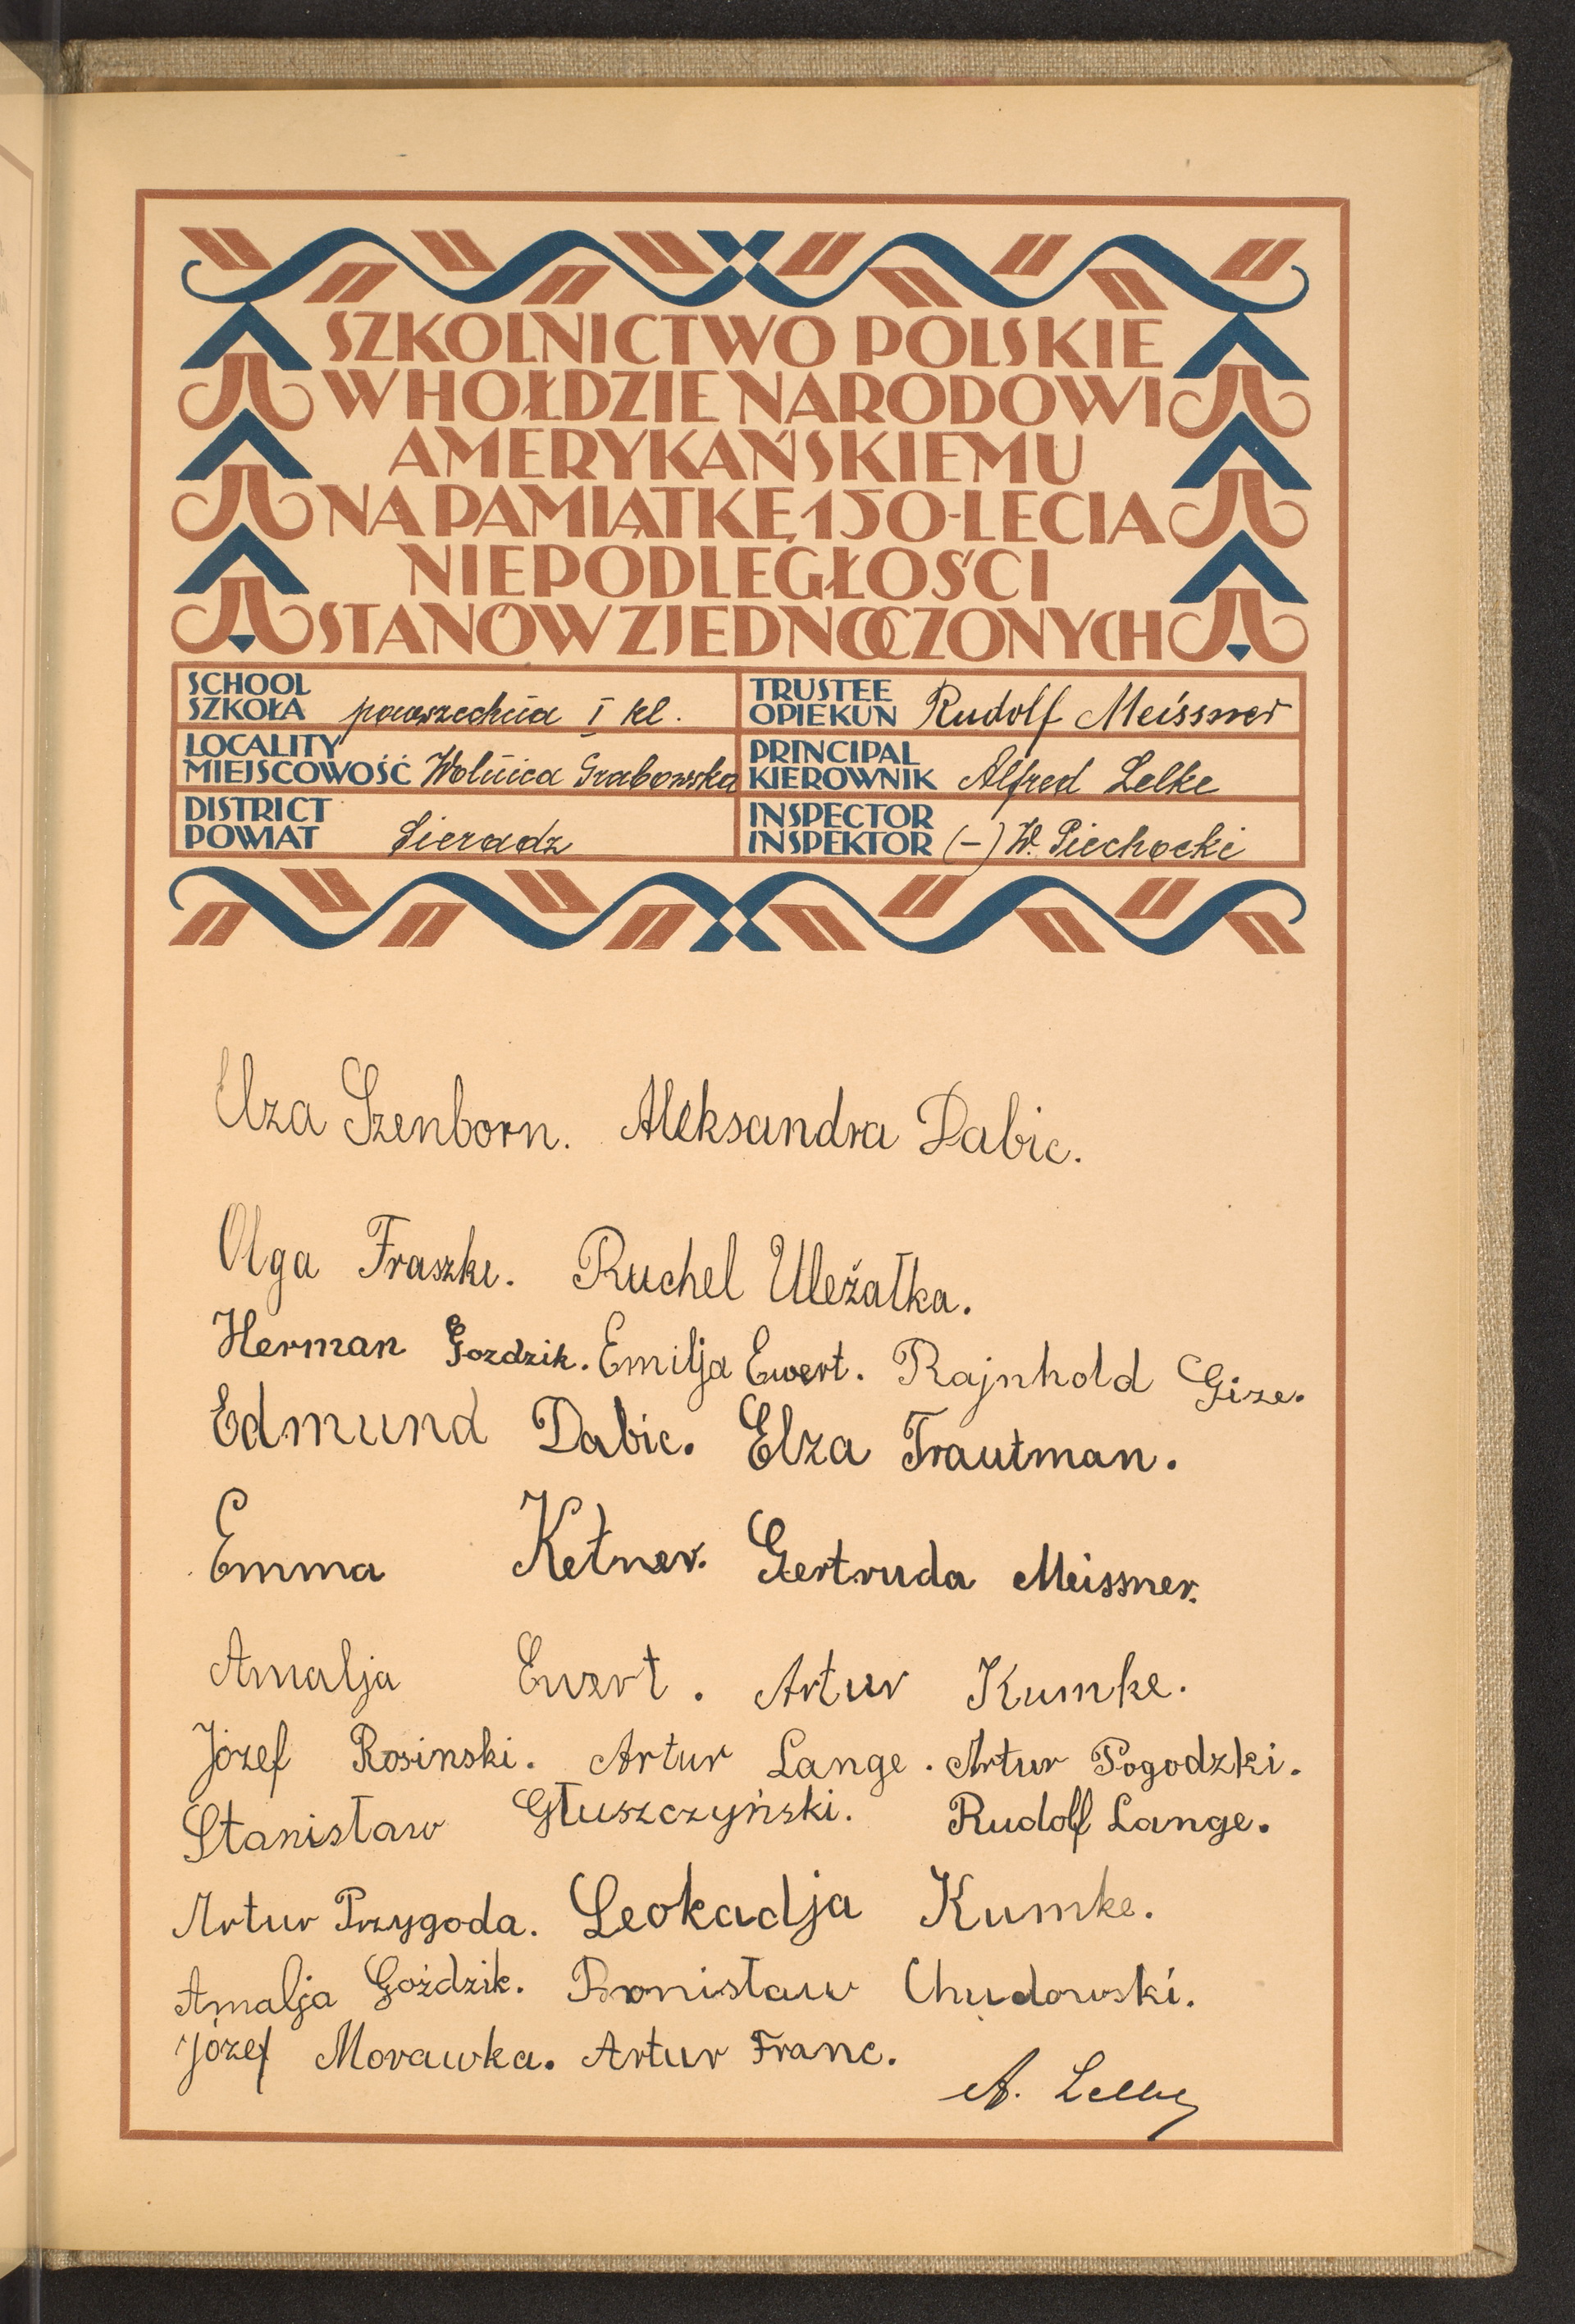 SZKOLNICTWO POLSKIE
W HOŁDZIE NARODOWI
AMERYKAŃSKIEMU
NA PAMIĄTKĘ 150-LECIA
NIEPODLEGŁOŚCI
STANÓW ZJEDNOCZONYCH
SCHOOL
SZKOŁA powszechna I kl.
TRUSTEE
OPIEKUN Rudolf Meissner
LOCALITY
MIEJSCOWOŚĆ Wolnica Grabowska
PRINCIPAL
KIEROWNIK Alfred Lelke
DISTRICT
POWIAT Sieradz
INSPECTOR
INSPEKTOR (-) W. Piechocki
Elza Szenborn. Aleksandra Dabic.
Olga Fraszke. Ruchel Uleżałka.
Herman Gozdzik. Emilja Ewert. Rajnhold Gize.
Edmund Dabic. Elza Trautman.
Emma Ketner. Gertruda Meissner.
Amalja Ewert. Artur Kumke.
Józef Rosinski. Artur Lange. Artur Pogodzki.
Stanisław Głuszczyński. Rudolf Lange.
Artur Przygoda. Leokadja Kumke.
Amalja Goździk. Bronisław Chudowski.
Józef Morawka. Artur Franc.
A. Lelke